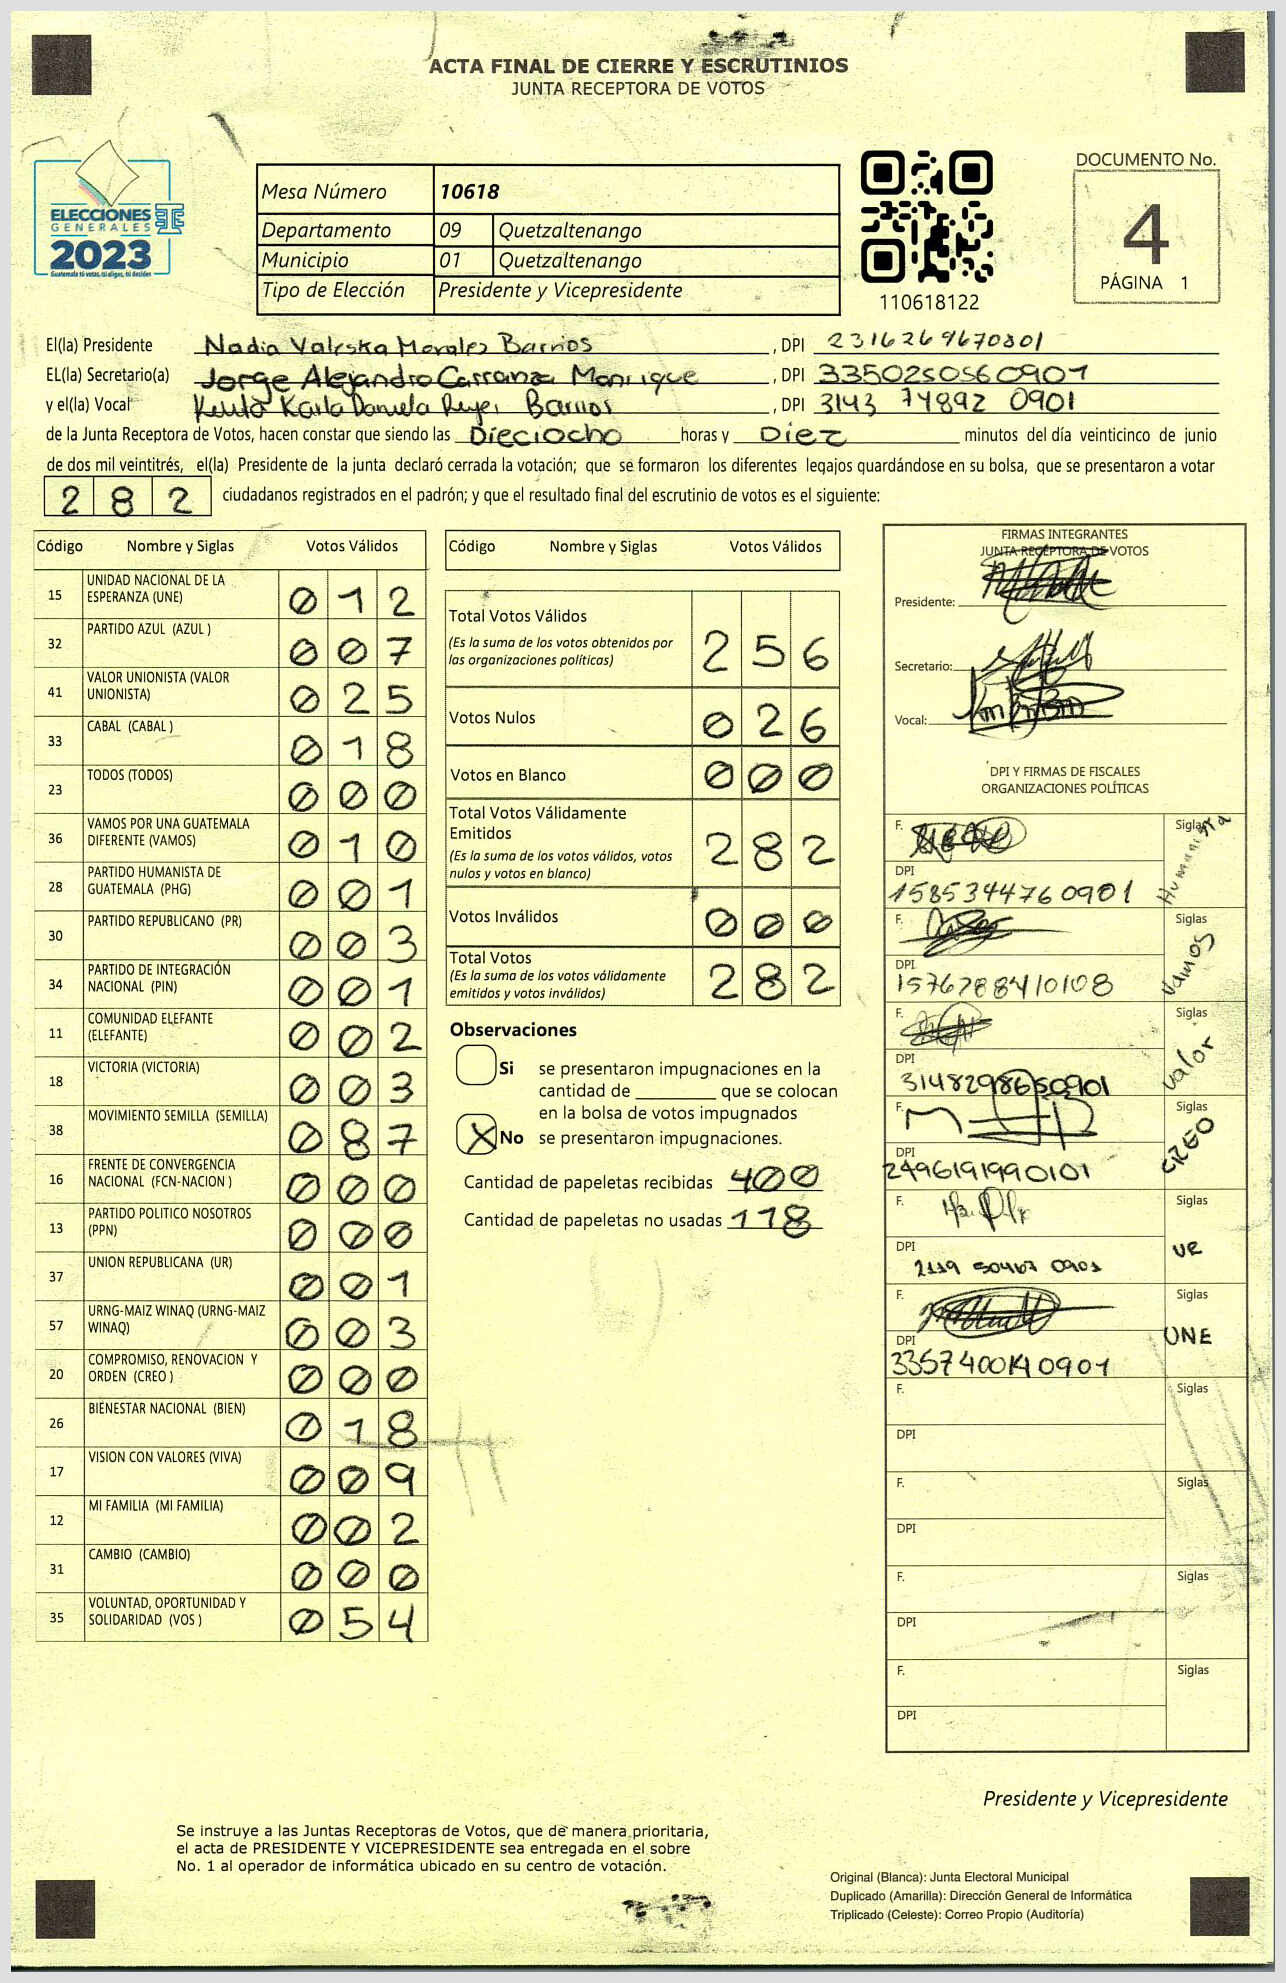 ACTA FINAL DE CIERRE Y ESCRUTINIOS
JUNTA RECEPTORA DE VOTOS
ELECCIONES
GENERALES
2023
Guatemala tú votas, tú eliges, tú decides
Mesa Número 10618
Departamento 09 Quetzaltenango
Municipio 01 Quetzaltenango
Tipo de Elección Presidente y Vicepresidente
110618122
DOCUMENTO No.
4
PÁGINA 1
El(la) Presidente Nadia Valeska Morales Barrios, DPI 2316269670801
EL(la) Secretario(a) Jorge Alejandro Carranza Manrique, DPI 3350250560901
y el(la) Vocal Karla Daniela Reyes Barrios, DPI 3143 74892 0901
de la Junta Receptora de Votos, hacen constar que siendo las Dieciocho horas y Diez minutos del día veinticinco de junio
de dos mil veintitrés, el(la) Presidente de la junta declaró cerrada la votación; que se formaron los diferentes legajos guardándose en su bolsa, que se presentaron a votar
282 ciudadanos registrados en el padrón; y que el resultado final del escrutinio de votos es el siguiente:
Código Nombre y Siglas Votos Válidos
15 UNIDAD NACIONAL DE LA ESPERANZA (UNE) 012
32 PARTIDO AZUL (AZUL ) 007
41 VALOR UNIONISTA (VALOR UNIONISTA) 025
33 CABAL (CABAL ) 018
23 TODOS (TODOS) 000
36 VAMOS POR UNA GUATEMALA DIFERENTE (VAMOS) 010
28 PARTIDO HUMANISTA DE GUATEMALA (PHG) 001
30 PARTIDO REPUBLICANO (PR) 003
34 PARTIDO DE INTEGRACIÓN NACIONAL (PIN) 001
11 COMUNIDAD ELEFANTE (ELEFANTE) 002
18 VICTORIA (VICTORIA) 003
38 MOVIMIENTO SEMILLA (SEMILLA) 087
16 FRENTE DE CONVERGENCIA NACIONAL (FCN-NACION ) 000
13 PARTIDO POLITICO NOSOTROS (PPN) 000
37 UNION REPUBLICANA (UR) 001
57 URNG-MAIZ WINAQ (URNG-MAIZ WINAQ) 003
20 COMPROMISO, RENOVACION Y ORDEN (CREO ) 000
26 BIENESTAR NACIONAL (BIEN) 018
17 VISION CON VALORES (VIVA) 009
12 MI FAMILIA (MI FAMILIA) 002
31 CAMBIO (CAMBIO) 000
35 VOLUNTAD, OPORTUNIDAD Y SOLIDARIDAD (VOS ) 054
Código Nombre y Siglas Votos Válidos
Total Votos Válidos 256
(Es la suma de los votos obtenidos por
las organizaciones políticas)
Votos Nulos 026
Votos en Blanco 000
Total Votos Válidamente
Emitidos 282
(Es la suma de los votos válidos, votos
nulos y votos en blanco)
Votos Inválidos 000
Total Votos 282
(Es la suma de los votos válidamente
emitidos y votos inválidos)
Observaciones
Si se presentaron impugnaciones en la
cantidad de ________ que se colocan
en la bolsa de votos impugnados
X No se presentaron impugnaciones.
Cantidad de papeletas recibidas 400
Cantidad de papeletas no usadas 118
FIRMAS INTEGRANTES
JUNTA RECEPTORA DE VOTOS
Presidente:
Secretario:
Vocal:
DPI Y FIRMAS DE FISCALES
ORGANIZACIONES POLÍTICAS
F. Siglas Humanista
DPI 1585344760901
F. Siglas Vamos
DPI 1576788410108
F. Siglas Valor
DPI 3148298650901
F. Siglas CREO
DPI 2496191990101
F. Siglas UR
DPI 2119 50467 0901
F. Siglas UNE
DPI 3357400140901
F. Siglas
DPI
F. Siglas
DPI
F. Siglas
DPI
F. Siglas
DPI
Presidente y Vicepresidente
Se instruye a las Juntas Receptoras de Votos, que de manera prioritaria,
el acta de PRESIDENTE Y VICEPRESIDENTE sea entregada en el sobre
No. 1 al operador de informática ubicado en su centro de votación.
Original (Blanca): Junta Electoral Municipal
Duplicado (Amarilla): Dirección General de Informática
Triplicado (Celeste): Correo Propio (Auditoría)